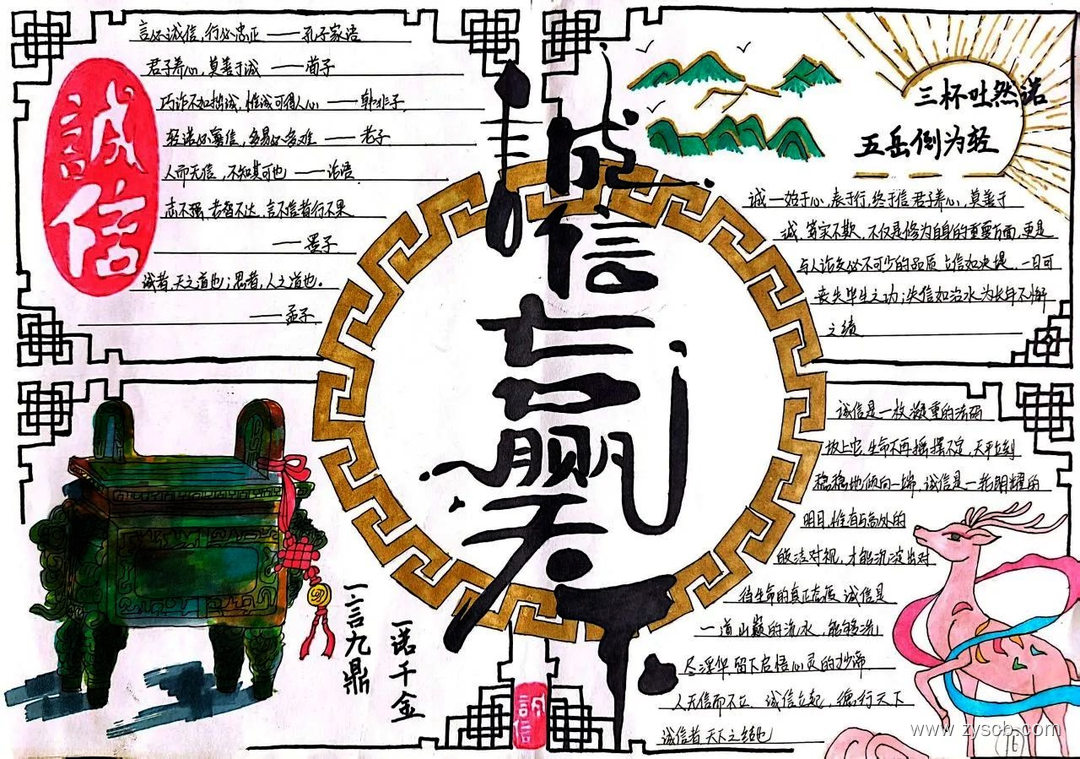 誠信
言必诚信,行必忠正 —— 孔子家语
君子养心,莫善于诚 —— 荀子
巧诈不如拙诚,惟诚可得人心 —— 韩非子
轻诺必寡信,多易必多难 —— 老子
人而无信,不知其可也 —— 论语
志不强者智不达,言不信者行不果
—— 墨子
诚者,天之道也;思者,人之道也。
—— 孟子
诚信言赢天下
三杯吐然诺
五岳倒为轻
诚一始于心,表于行,终于信君子养心,莫善于
诚,笃实不欺,不仅是修为自身的重要方面,更是
与人访交必不可少的品质立信如决堤,一日可
丧失毕生之功;失信如治水为长年不懈
之绩
一言九鼎
一诺千金
诚信是一枚凝重的砝码
放上它,生命不再摇摆不定,天平立刻
稳稳地倾向一端,诚信是一轮明耀的
明月,惟有与高处的
皎洁对视,才能沉淀出对
待生命的真正态度 诚信是
一道山巅的流水,能够洗
尽浮华,留下启悟心灵的妙谛
人无信而不立 诚信立起,德行天下
诚信者,天下之结也
誠信
www.zyscb.com
16